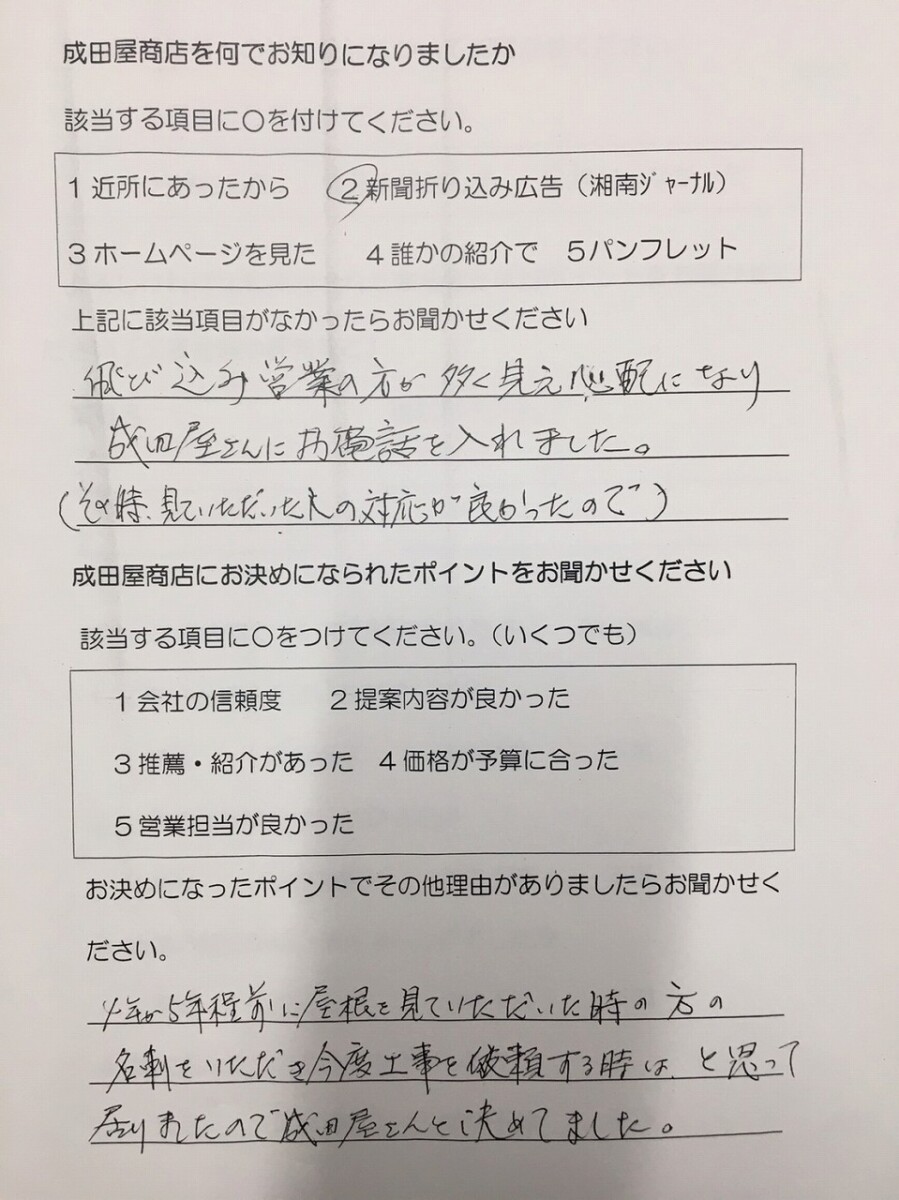 成田屋商店を何でお知りになりましたか
該当する項目に〇を付けてください。
1 近所にあったから　2 新聞折り込み広告（湘南ｼﾞｬｰﾅﾙ）
3 ホームページを見た　4 誰かの紹介で　5 パンフレット
上記に該当項目がなかったらお聞かせください
飛び込み営業の方が多く見え心配になり
成田屋さんにお電話を入れました。
(その時、見ていただいた人の対応が良かったので)
成田屋商店にお決めになられたポイントをお聞かせください
該当する項目に〇をつけてください。（いくつでも）
1 会社の信頼度　2 提案内容が良かった
3 推薦・紹介があった　4 価格が予算に合った
5 営業担当が良かった
お決めになったポイントでその他理由がありましたらお聞かせく
ださい。
4年か5年程前に屋根を見ていただいた時の方の
名刺をいただき今度工事を依頼する時は、と思って
居りましたので成田屋さんと決めてました。